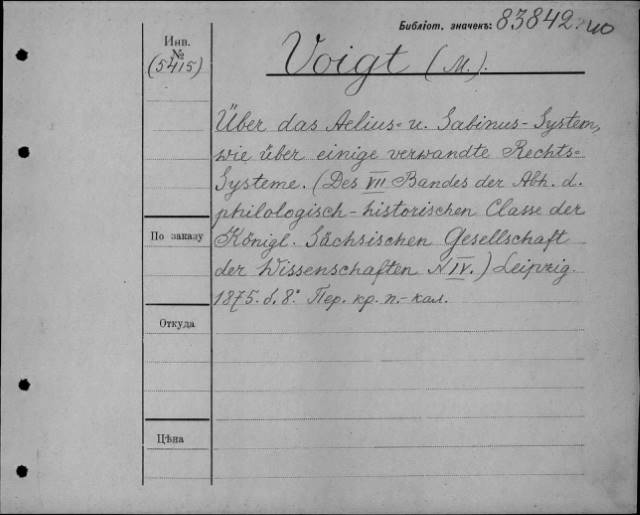 Библіот. значекъ: 83842. 40
Инв.
№
(5415)
Voigt (M.)
Über das Aelius- u. Sabinus-System,
wie über einige verwandte Rechts-
Systeme. (Des VII Bandes der Abh. d.
philologisch-historischen Classe der
Königl. Sächsischen Gesellschaft
der Wissenschaften N IV.) Leipzig.
1875. б. 8° Пер. кр. п.-кал.
По заказу
Откуда
Цѣна